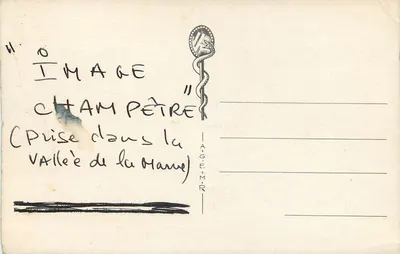 " IMAGE
CHAMPÊTRE"
(prise dans la
VALLée de la Marne)
A.G.E.M.R